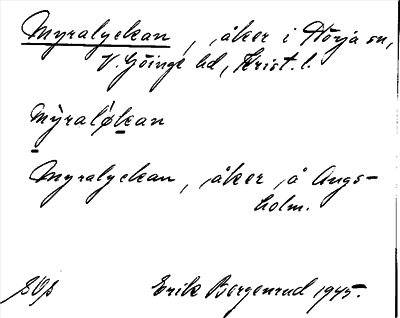 Myralyckan, åker i Hörja sn,
V. Göinge hd, Krist. l.
Myralo̸kan
Myralyckan, åker, å Ängs-
holm.
Erik Borgenrud 1945.